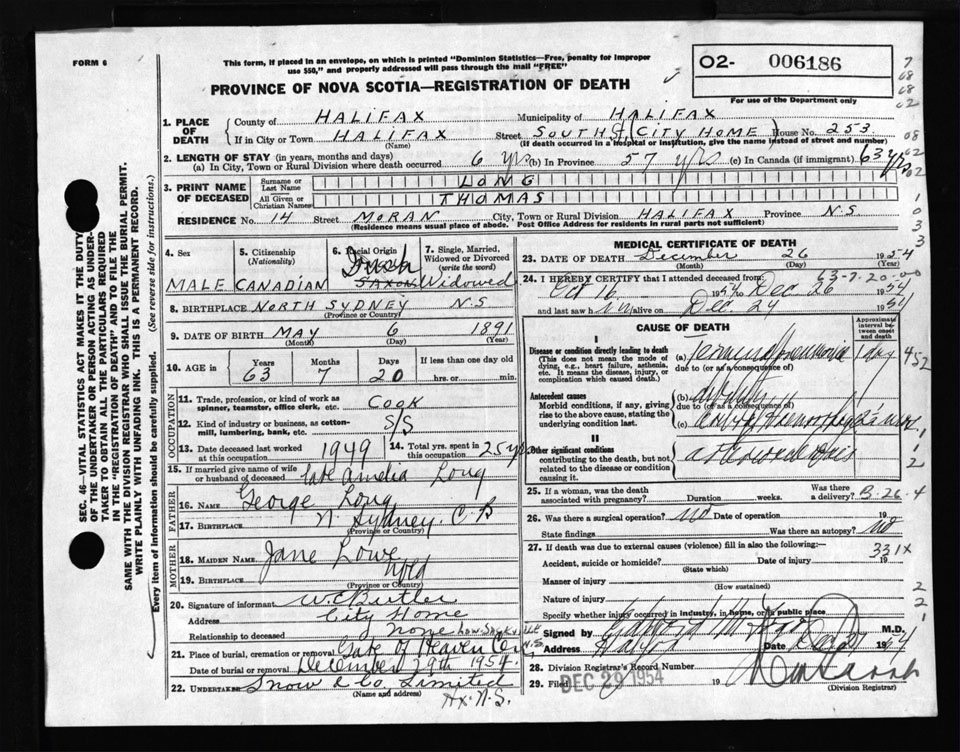 FORM 6
This form, if placed in an envelope, on which is printed "Dominion Statistics—Free, penalty for improper
use $50," and properly addressed will pass through the mail "FREE"
O2- 006186
For use of the Department only
PROVINCE OF NOVA SCOTIA—REGISTRATION OF DEATH
1. PLACE OF DEATH
County of HALIFAX Municipality of HALIFAX
If in City or Town HALIFAX Street SOUTH St (CITY HOME) House No. 253
(Name) (If death occurred in a hospital or institution, give the name instead of street and number)
2. LENGTH OF STAY (in years, months and days)
(a) In City, Town or Rural Division where death occurred 6 yrs (b) In Province 57 yrs (c) In Canada (if immigrant) 63 yrs
3. PRINT NAME OF DECEASED
Surname or Last Name LONG
All Given or Christian Names THOMAS
RESIDENCE No. 14 Street MORAN City, Town or Rural Division HALIFAX Province N.S.
(Residence means usual place of abode. Post Office Address for residents in rural parts not sufficient)
4. Sex MALE
5. Citizenship (Nationality) CANADIAN
6. Racial Origin Irish SAXON
7. Single, Married, Widowed or Divorced (write the word) Widowed
8. BIRTHPLACE NORTH SYDNEY N S
(Province or Country)
9. DATE OF BIRTH MAY 6 1891
(Month) (Day) (Year)
10. AGE in Years Months Days If less than one day
63 7 20 hrs. or min.
OCCUPATION
11. Trade, profession, or kind of work as spinner, teamster, office clerk, etc. COOK
12. Kind of industry or business, as cotton-mill, lumbering, bank, etc. S/S
13. Date deceased last worked at this occupation 1949
14. Total yrs. spent in this occupation 25 yrs
15. If married give name of wife or husband of deceased late Amelia Long
FATHER
16. NAME George Long
17. BIRTHPLACE N. Sydney C B
(Province or Country)
MOTHER
18. MAIDEN NAME Jane Lowe
19. BIRTHPLACE Nfld
(Province or Country)
20. Signature of informant W.E. Butler
Address City Home
Relationship to deceased none
21. Place of burial, cremation or removal Gate of Heaven Cem
Date of burial or removal December 29th 1954.
22. UNDERTAKER Snow & Co. Limited
(Name and address)
Hx. N.S.
MEDICAL CERTIFICATE OF DEATH
23. DATE OF DEATH December 26 1954
(Month) (Day) (Year)
63-7-20-00
24. I HEREBY CERTIFY that I attended deceased from:
Oct 16 1954 to Dec 26 1954
and last saw him alive on Dec. 24 1954
CAUSE OF DEATH
Approximate interval between onset and death
I
Disease or condition directly leading to death
(This does not mean the mode of dying, e.g., heart failure, asthenia, etc. It means the disease, injury, or complication which caused death.)
(a) Terminal Pneumonia 1 day
due to (or as a consequence of)
Antecedent causes
Morbid conditions, if any, giving rise to the above cause, stating the underlying condition last.
(b)
due to (or as a consequence of)
(c)
II
Other significant conditions
contributing to the death, but not related to the disease or condition causing it.
25. If a woman, was the death associated with pregnancy? Duration weeks. Was there a delivery? B-26-4
26. Was there a surgical operation? no Date of operation 19
State findings Was there an autopsy? no
27. If death was due to external causes (violence) fill in also the following: 331x
Accident, suicide or homicide? Date of injury 19
(State which)
Manner of injury
(How sustained)
Nature of injury
Specify whether injury occurred in industry, in home, or in public place
Signed by M.D.
Address Halifax Date Dec 27 1954
28. Division Registrar's Record Number
29. Filed DEC 29 1954 19
(Division Registrar)
SEC. 46—VITAL STATISTICS ACT MAKES IT THE DUTY
OF THE UNDERTAKER OR PERSON ACTING AS UNDER-
TAKER TO OBTAIN ALL THE PARTICULARS REQUIRED
IN THE "REGISTRATION OF DEATH" AND TO FILE THE
SAME WITH THE DIVISION REGISTRAR WHO SHALL ISSUE THE BURIAL PERMIT.
WRITE PLAINLY WITH UNFADING INK. THIS IS A PERMANENT RECORD.
Every item of information should be carefully supplied. (See reverse side for instructions.)